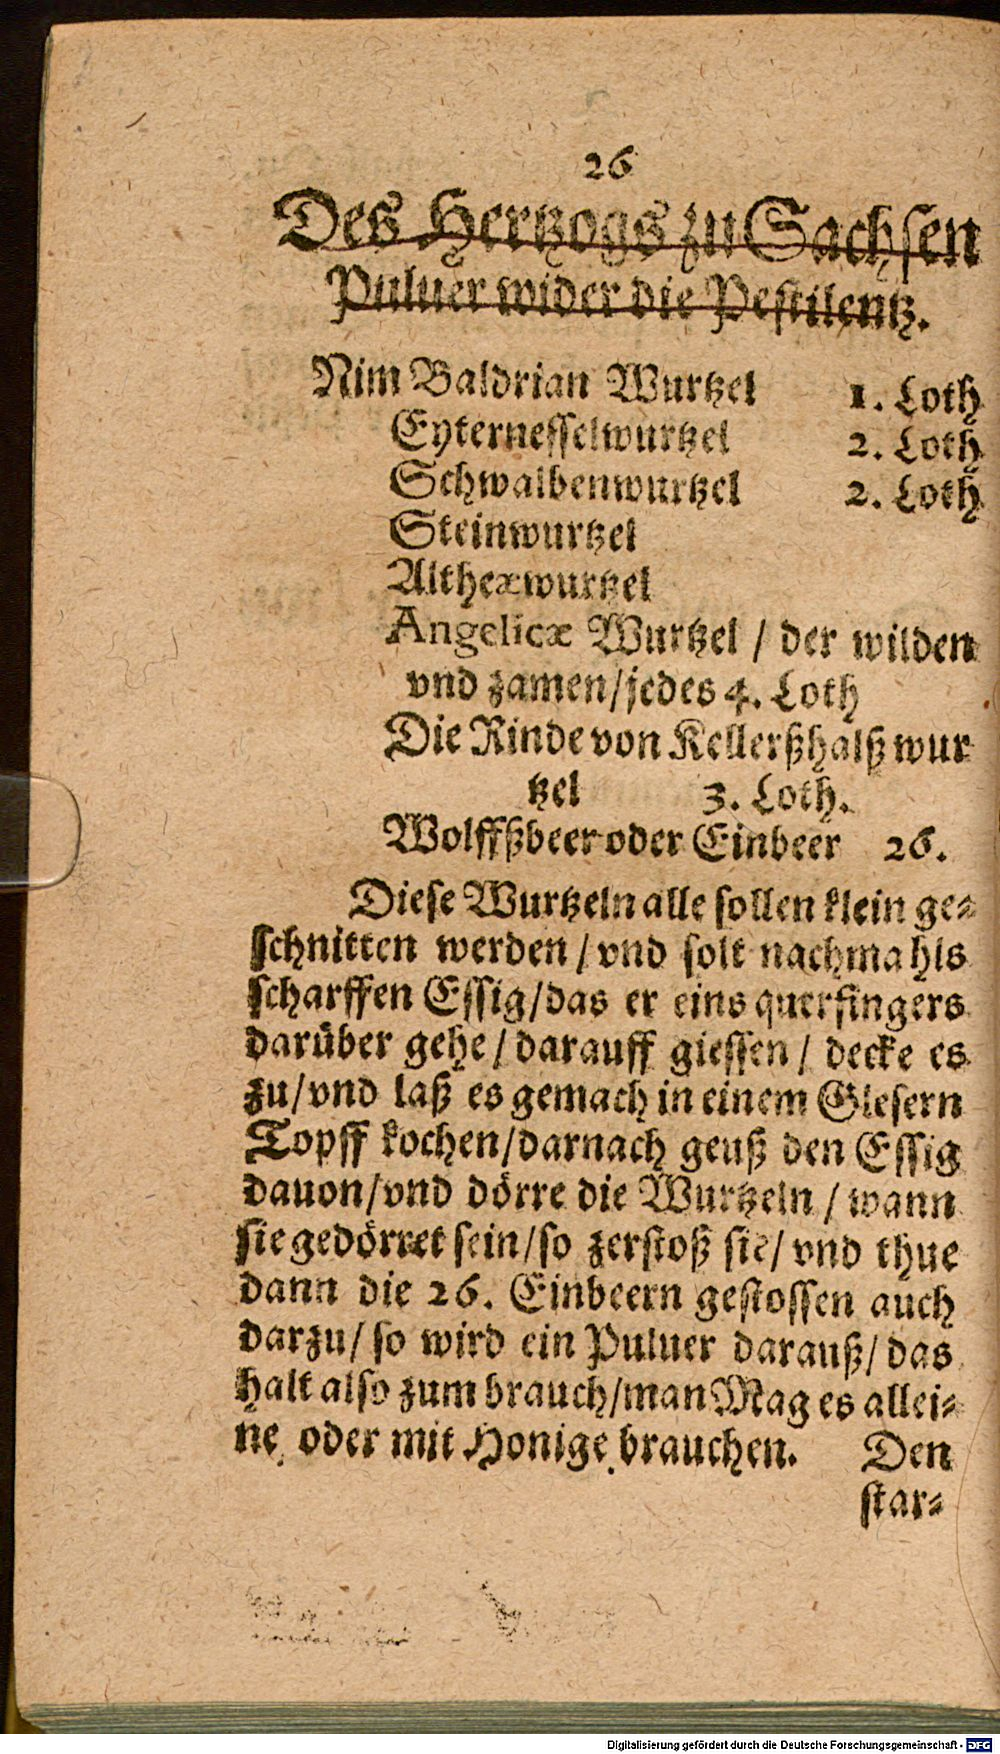 26
Des Hertzogs zu Sachsen
Puluer wider die Pestilentz.
Nim Baldrian Wurtzel 1. Loth
Eyternesselwurtzel 2. Loth
Schwalbenwurtzel 2. Loth
Steinwurtzel
Altheæwurtzel
Angelicæ Wurtzel / der wilden
vnd zamen/jedes 4. Loth
Die Rinde von Kellerßhalß wur
tzel 3. Loth.
Wolffßbeer oder Einbeer 26.
Diese Wurtzeln alle sollen klein ge⸗
schnitten werden / vnd solt nachmahls
scharffen Essig/das er eins querfingers
darüber gehe / darauff giessen / decke es
zu/vnd laß es gemach in einem Glesern
Topff kochen/darnach geuß den Essig
dauon/vnd dörre die Wurtzeln / wann
sie gedörret sein/so zerstoß sie/ vnd thue
dann die 26. Einbeern gestossen auch
darzu/ so wird ein Puluer darauß/ das
halt also zum brauch/man Mag es allei⸗
ne oder mit Honige brauchen. Den
star⸗
Digitalisierung gefördert durch die Deutsche Forschungsgemeinschaft - DFG